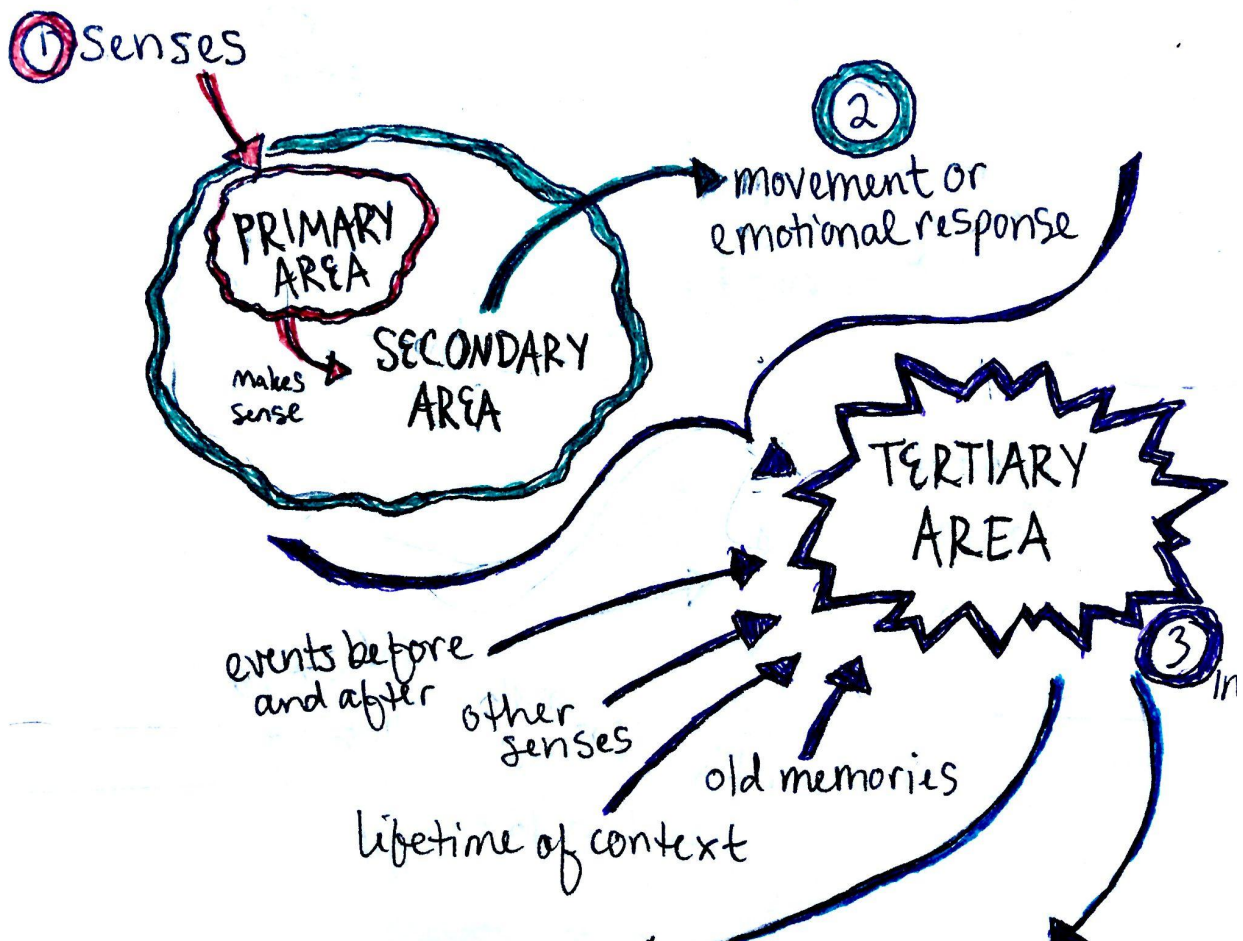 1 Senses
2
movement or
emotional response
PRIMARY
AREA
makes
sense
SECONDARY
AREA
TERTIARY
AREA
3
events before
and after
other
senses
old memories
lifetime of context